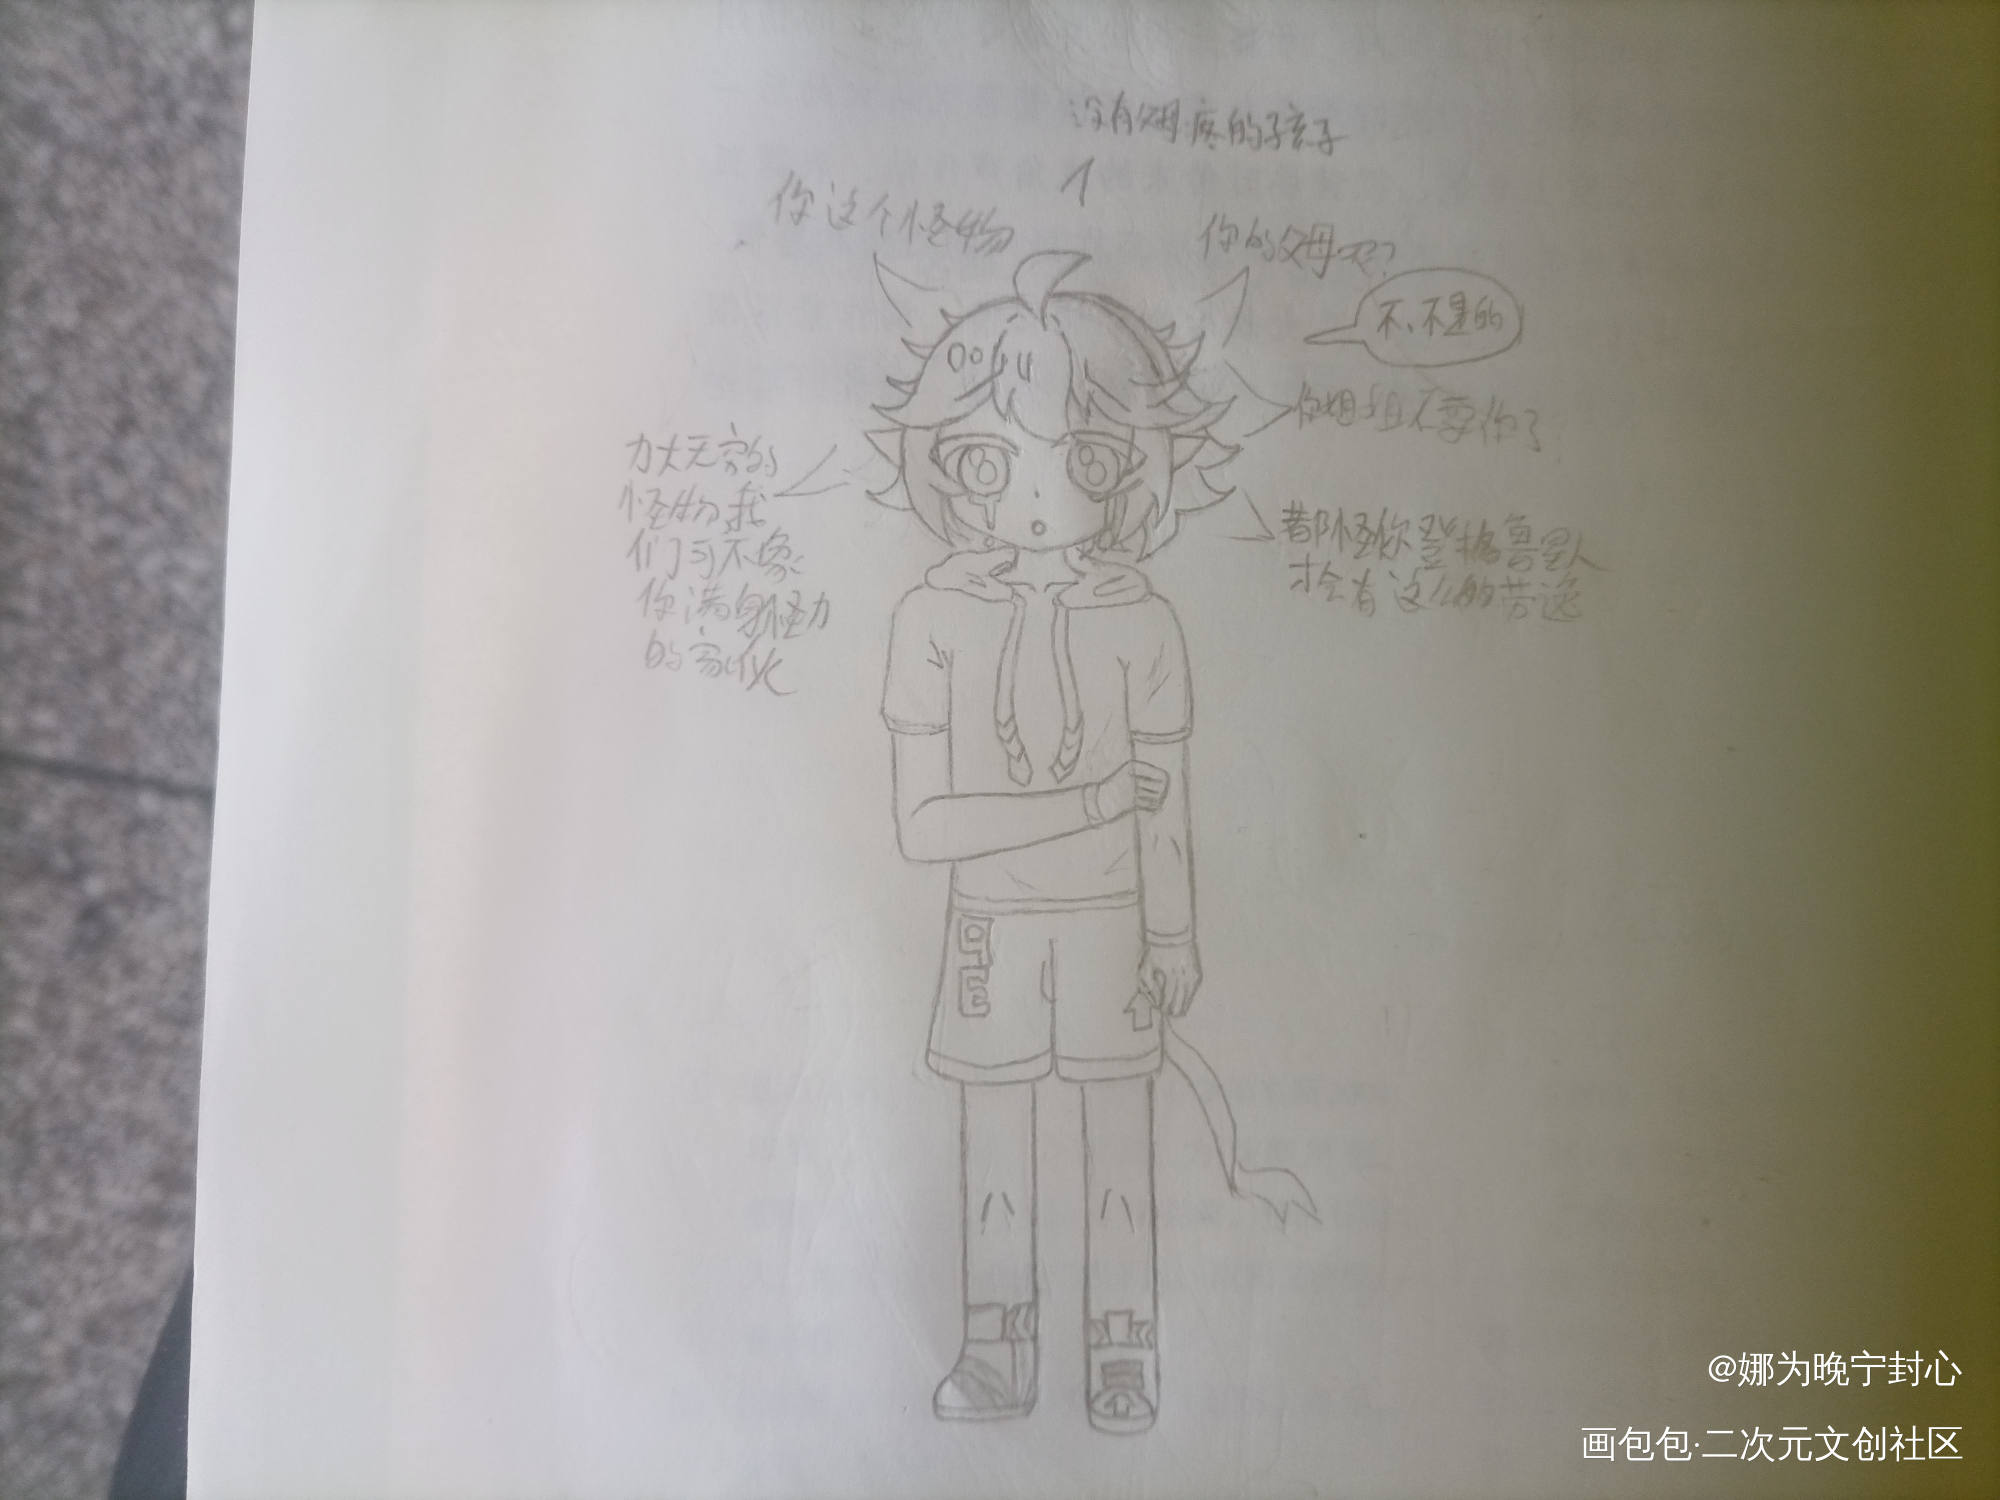 没有父母疼的孩子
你这个怪物
你的父母呢?
不、不是的
你姐姐不要你了
力大无穷的
怪物我
们可不像
你满身怪力
的家伙
都怪你
才会有这么的劳
@娜为晚宁封心
画包包·二次元文创社区